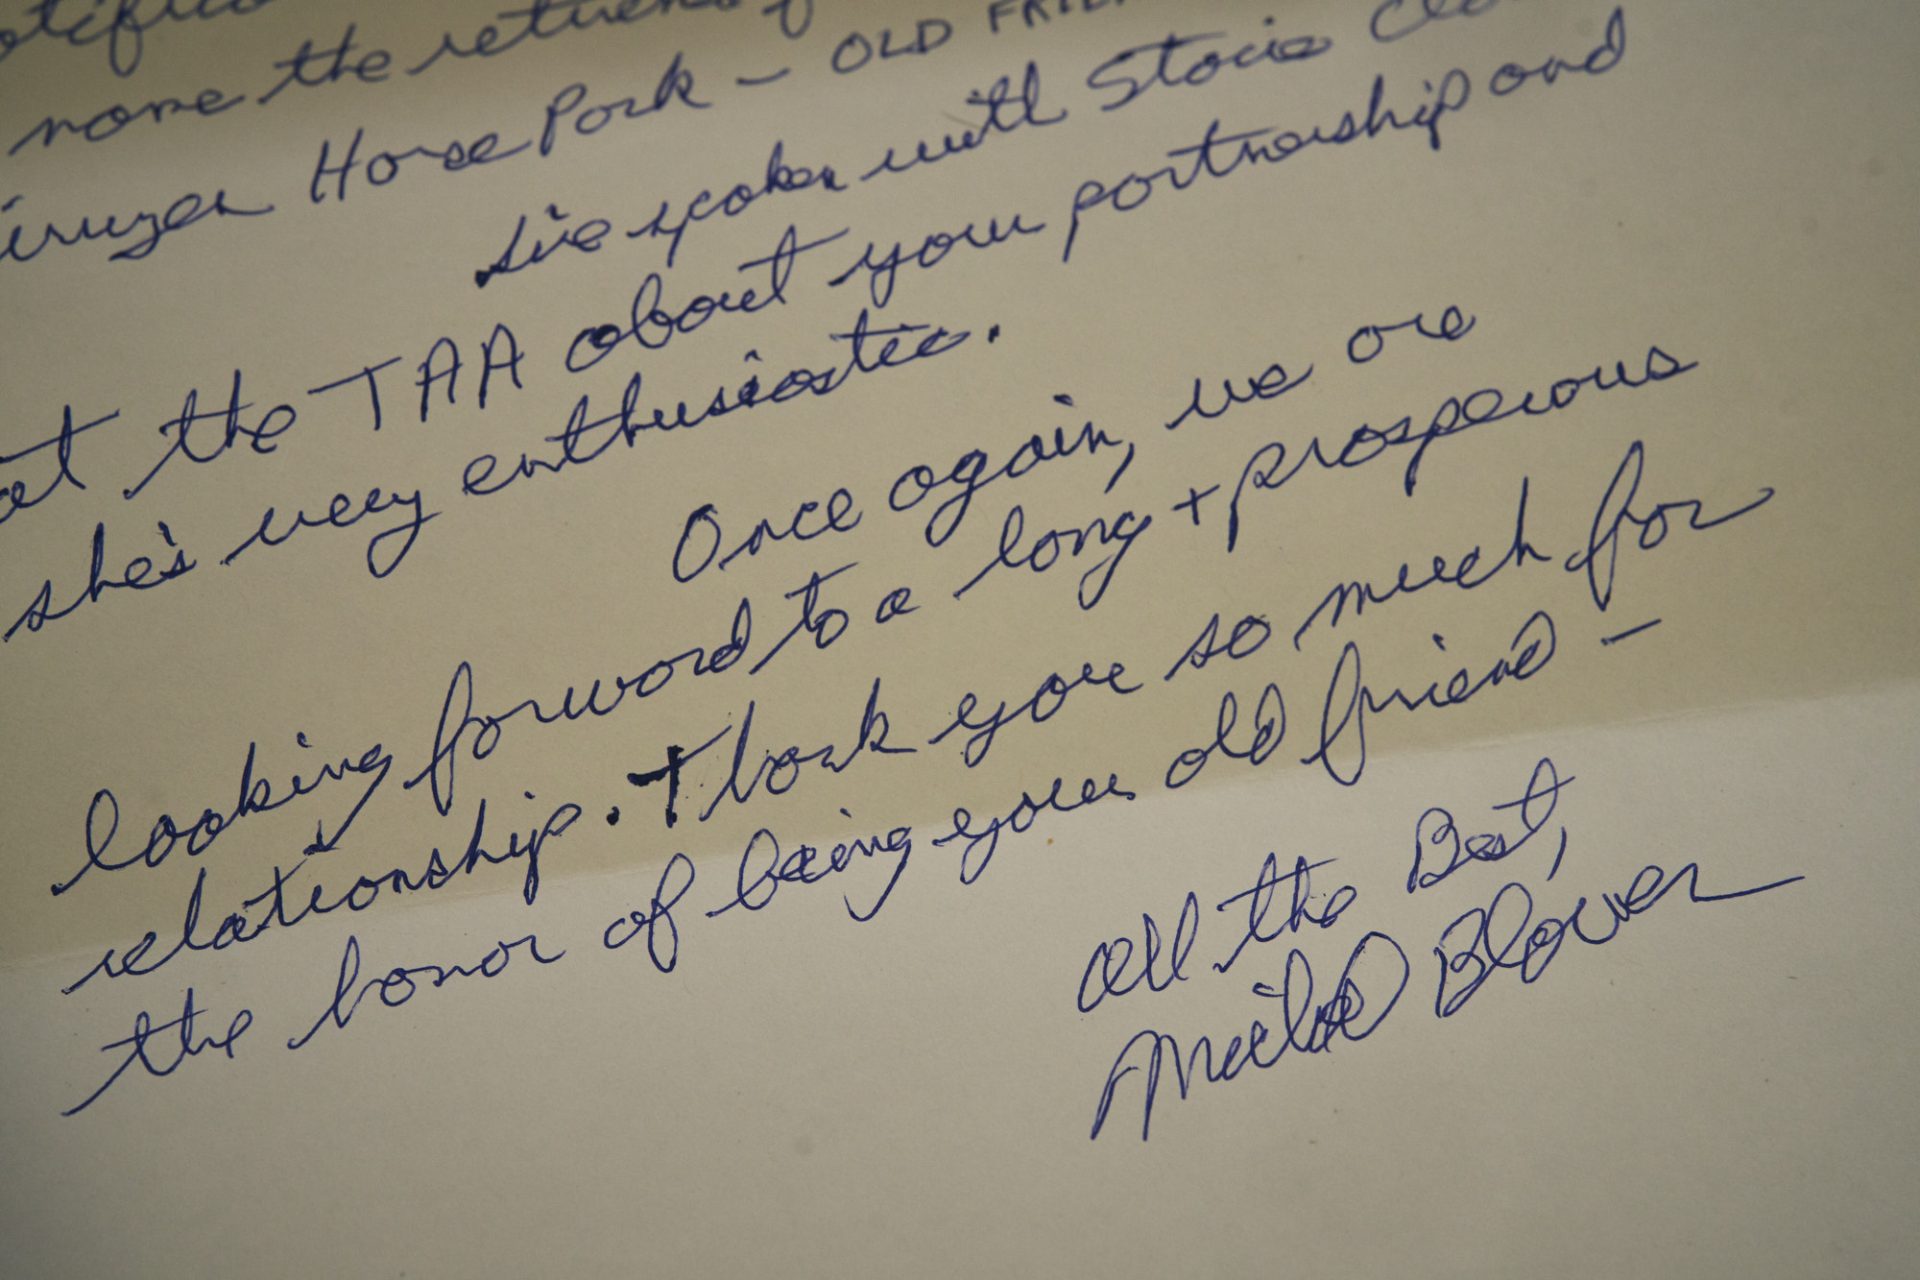 name the return
Horse Park – OLD
I've spoken with Stacie
at the TAA about your partnership and
she's very enthusiastic.
Once again, we are
looking forward to a long + prosperous
relationship. Thank you so much for
the honor of being your old friend –
All the Best,
Michael Blowen